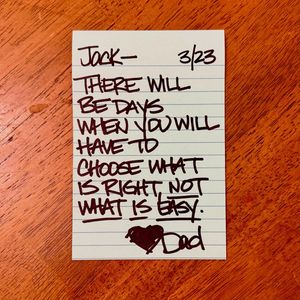 Jack— 3/23
THERE WILL
BE DAYS
WHEN YOU WILL
HAVE TO
CHOOSE WHAT
IS RIGHT, NOT
WHAT IS EASY.
Dad